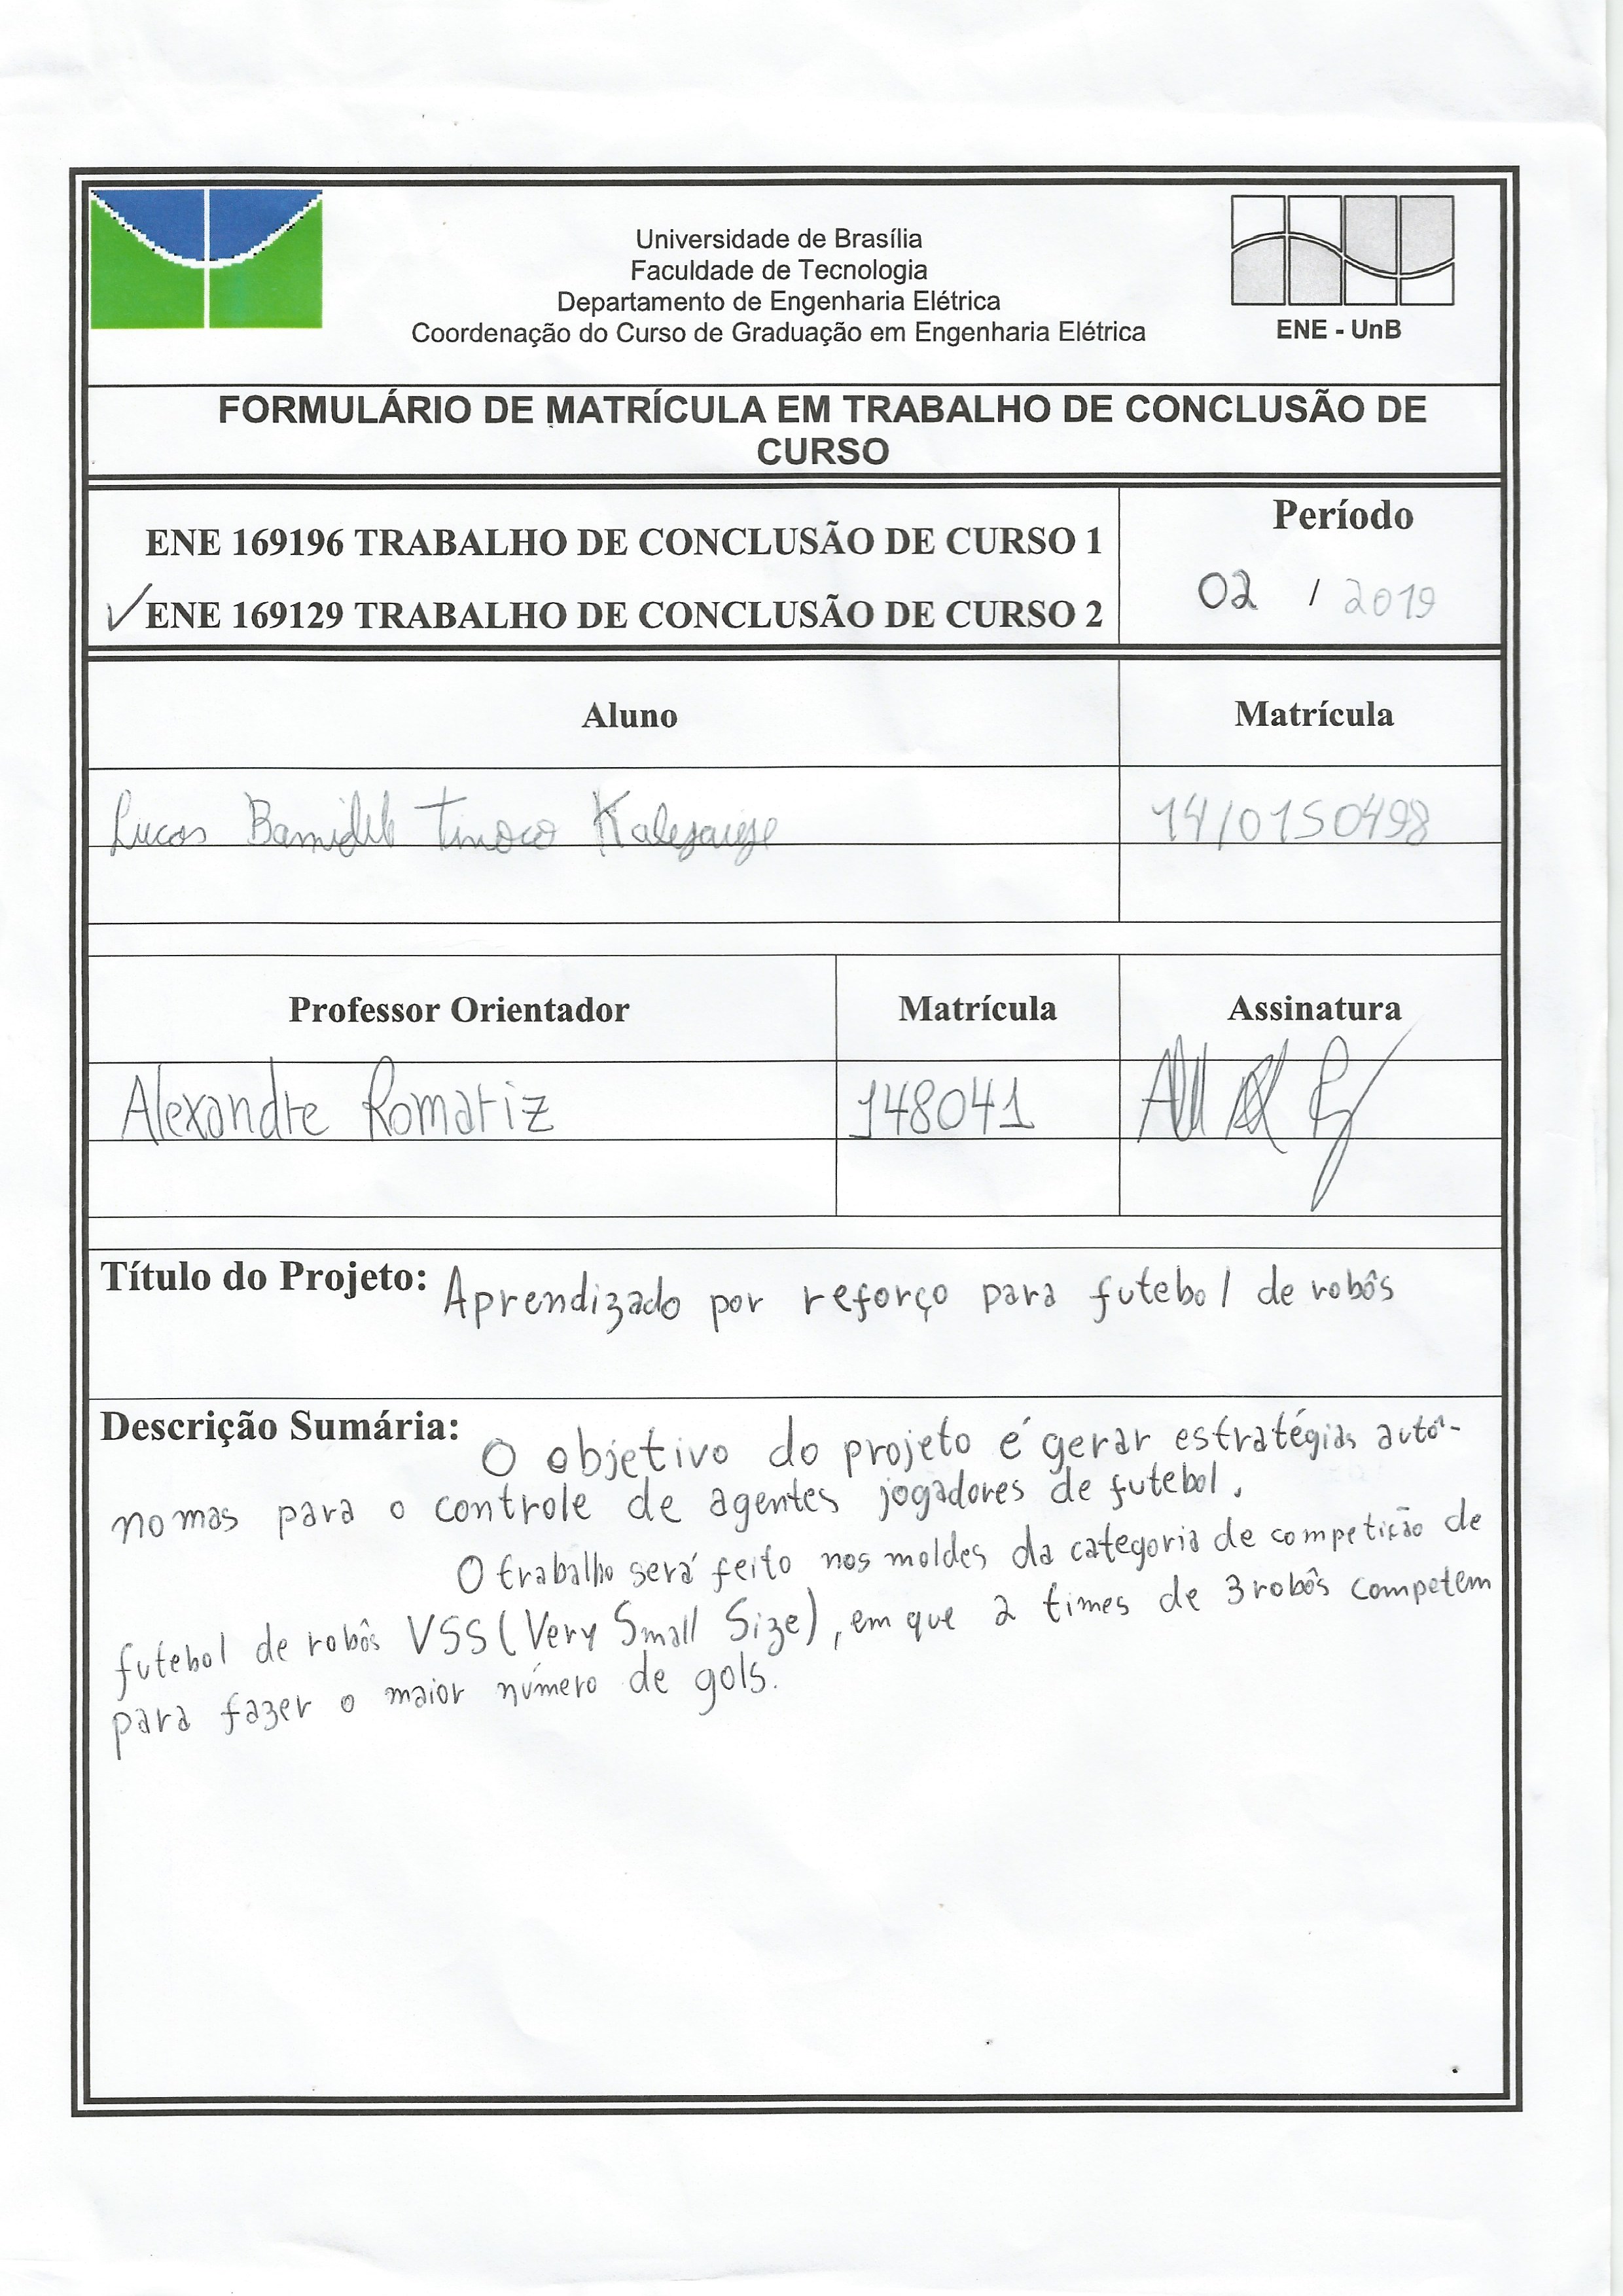 Universidade de Brasília
Faculdade de Tecnologia
Departamento de Engenharia Elétrica
Coordenação do Curso de Graduação em Engenharia Elétrica
ENE - UnB
FORMULÁRIO DE MATRÍCULA EM TRABALHO DE CONCLUSÃO DE
CURSO
ENE 169196 TRABALHO DE CONCLUSÃO DE CURSO 1
✓ENE 169129 TRABALHO DE CONCLUSÃO DE CURSO 2
Período
02 / 2019
Aluno Matrícula
Lucas Bamidele Tinoco 14/0150498
Professor Orientador Matrícula Assinatura
Alexandre Romariz 148041
Título do Projeto: Aprendizado por reforço para futebol de robôs
Descrição Sumária: O objetivo do projeto é gerar estratégias autô-
nomas para o controle de agentes jogadores de futebol.
O trabalho será feito nos moldes da categoria de competição de
futebol de robôs VSS (Very Small Size), em que 2 times de 3 robôs competem
para fazer o maior número de gols.